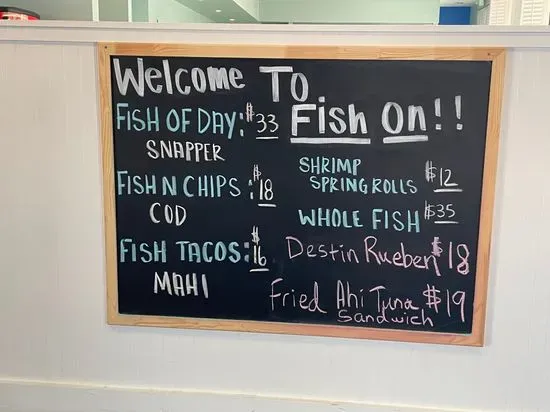 Welcome To
Fish On!!
FISH OF DAY: $33
SNAPPER
FISH N CHIPS: $18
COD
FISH TACOS: $16
MAHI
SHRIMP
SPRING ROLLS $12
WHOLE FISH $35
Destin Rueben $18
Fried Ahi Tuna $19
Sandwich